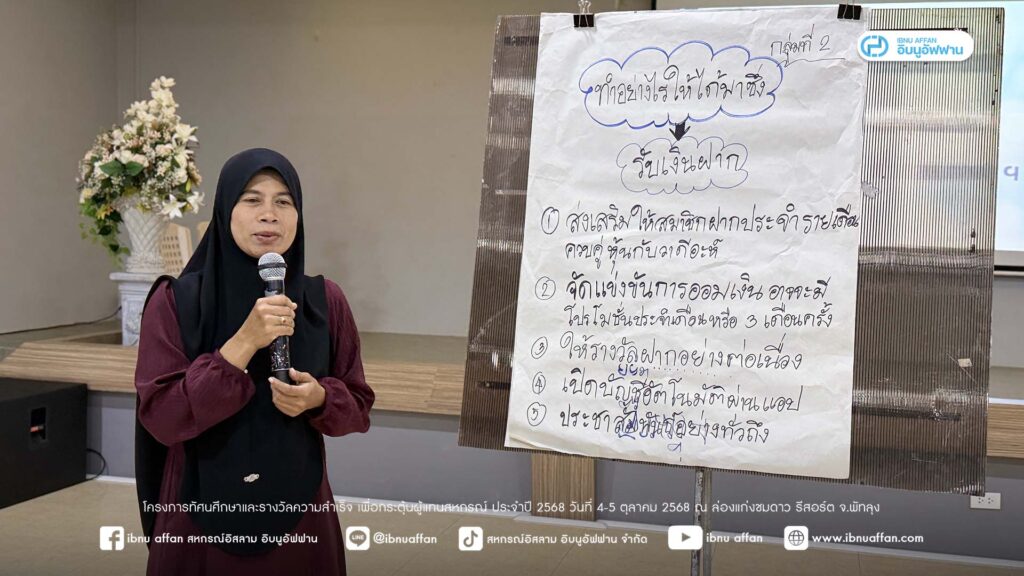 กลุ่มที่ 2
IBNU AFFAN
อิบนูอัฟฟาน
ทำอย่างไรให้ได้มาซึ่ง
รับเงินฝาก
① ส่งเสริมให้สมาชิกฝากประจำรายเดือน
ควบคู่หุ้นกับวาดีอะห์
② จัดแข่งขันการออมเงิน อาจจะมี
โปรโมชั่นประจำเดือน หรือ 3 เดือนครั้ง
③ ให้รางวัลฝากอย่างต่อเนื่อง
④ เปิดบัญชีอัตโนมัติผ่านแอป
⑤ ประชาสัมพันธ์อย่างทั่วถึง
โครงการทัศนศึกษาและรางวัลความสำเร็จ เพื่อกระตุ้นผู้แทนสหกรณ์ ประจำปี 2568 วันที่ 4-5 ตุลาคม 2568 ณ ล่องแก่งชมดาว รีสอร์ต จ.พัทลุง
ibnu affan สหกรณ์อิสลาม อิบนูอัฟฟาน
LINE @ibnuaffan
สหกรณ์อิสลาม อิบนูอัฟฟาน จำกัด
ibnu affan
www.ibnuaffan.com